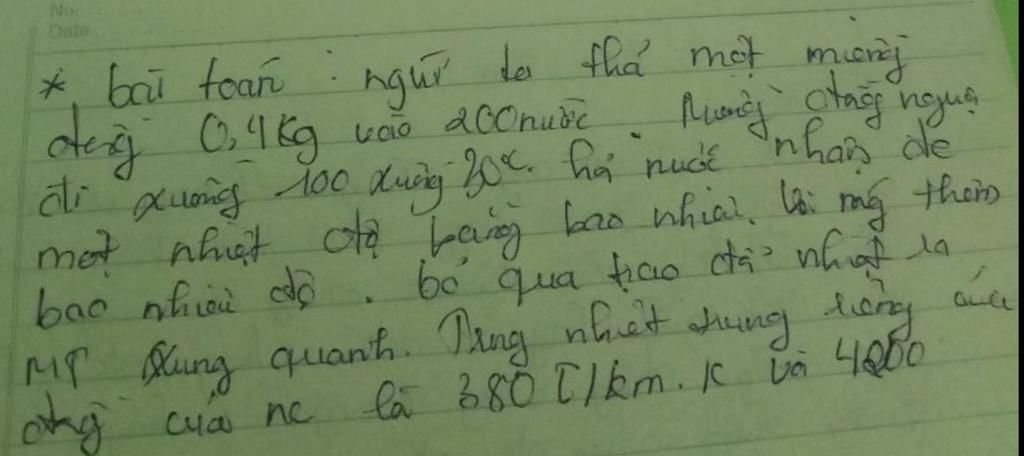 No.
Date
* bài toán : người ta thả một miếng
đồng 0,4kg vào 200nước. Miếng đồng nguộ
đi xuống 100 xuống 30°c. hỏi nước nhận đc
một nhiệt độ bằng bao nhiêu. thêm
bao nhiêu độ. bỏ qua trao đổi nhiệt
MT xung quanh. nhiệt dung riêng của
đồng của nc là 380 J/km.K và 4200